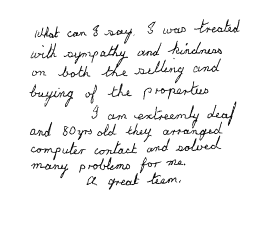 What can I say. I was treated
with sympathy and kindness
on both the selling and
buying of the properties
I am extreemly deaf
and 80yrs old they arranged
computer contact and solved
many problems for me.
A great team.